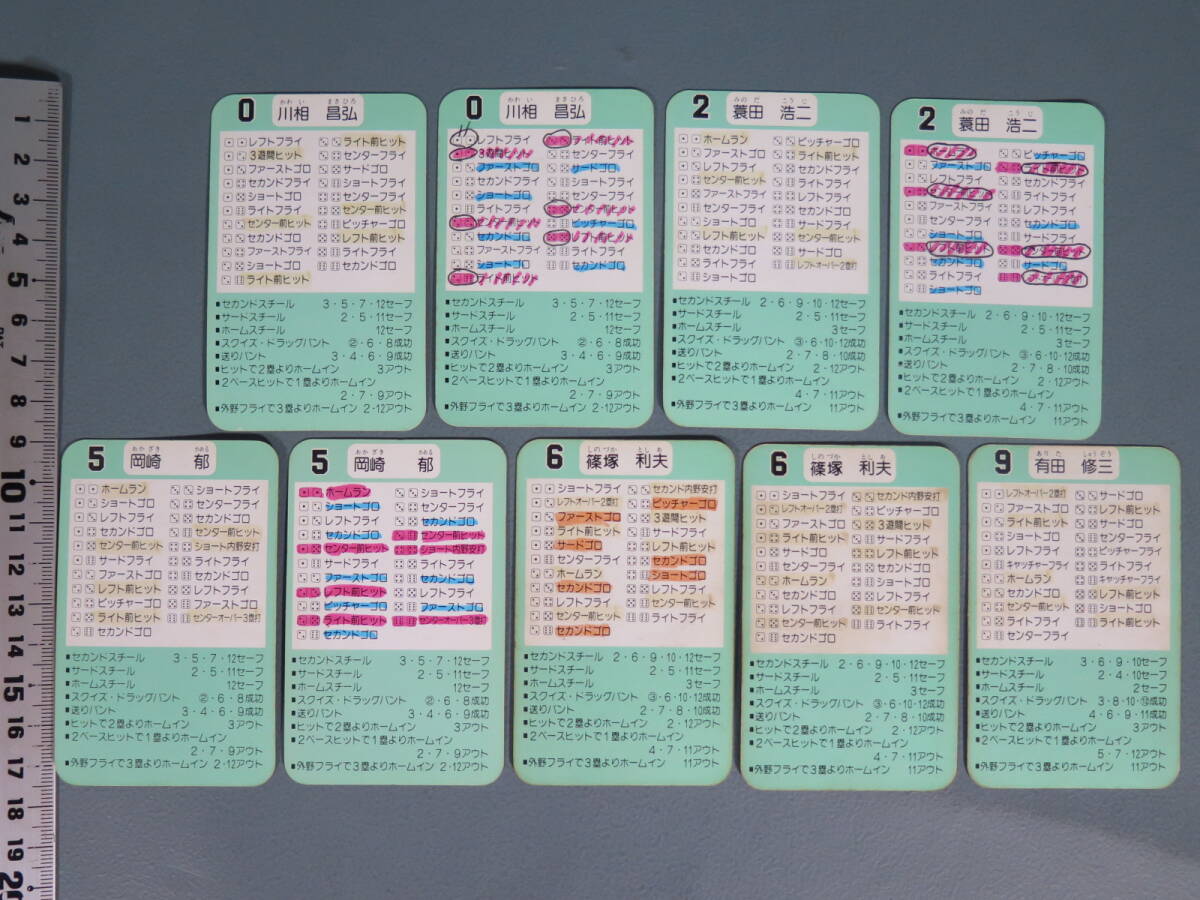 0 川相 昌弘
かわい まさひろ
レフトフライ ライト前ヒット
3遊間ヒット センターフライ
ファーストゴロ サードゴロ
セカンドフライ ショートフライ
ショートゴロ セカンドフライ
ライトフライ センター前ヒット
センター前ヒット ピッチャーゴロ
セカンドゴロ レフト前ヒット
ファーストフライ ショートフライ
ショートゴロ セカンドゴロ
ライト前ヒット
■セカンドスチール 3・5・7・12セーフ
■サードスチール 2・5・11セーフ
■ホームスチール 12セーフ
■スクイズ・ドラッグバント ②・6・8成功
■送りバント 3・4・6・9成功
■ヒットで2塁よりホームイン 3アウト
■2ベースヒットで1塁よりホームイン
2・7・9アウト
■外野フライで3塁よりホームイン 2・12アウト
0 川相 昌弘
かわい まさひろ
レフトフライ ライト前ヒット
3遊間ヒット センターフライ
ファーストゴロ サードゴロ
セカンドフライ ショートフライ
ショートゴロ セカンドフライ
ライトフライ センター前ヒット
センター前ヒット ピッチャーゴロ
セカンドゴロ レフト前ヒット
ファーストフライ ショートフライ
ショートゴロ セカンドゴロ
ライト前ヒット
■セカンドスチール 3・5・7・12セーフ
■サードスチール 2・5・11セーフ
■ホームスチール 12セーフ
■スクイズ・ドラッグバント ②・6・8成功
■送りバント 3・4・6・9成功
■ヒットで2塁よりホームイン 3アウト
■2ベースヒットで1塁よりホームイン
2・7・9アウト
■外野フライで3塁よりホームイン 2・12アウト
2 蓑田 浩二
みのだ こうじ
ホームラン ピッチャーゴロ
ファーストゴロ ライト前ヒット
レフトフライ セカンドフライ
センター前ヒット ショートフライ
ファーストフライ レフトフライ
センターフライ セカンドゴロ
ショートゴロ サードフライ
レフト前ヒット センター前ヒット
セカンドゴロ サードゴロ
ライトフライ レフトオーバー2塁打
ショートゴロ
■セカンドスチール 2・6・9・10・12セーフ
■サードスチール 2・5・11セーフ
■ホームスチール 3セーフ
■スクイズ・ドラッグバント ③・6・10・12成功
■送りバント 2・7・8・10成功
■ヒットで2塁よりホームイン 2・12アウト
■2ベースヒットで1塁よりホームイン
4・7・11アウト
■外野フライで3塁よりホームイン 11アウト
2 蓑田 浩二
みのだ こうじ
ピッチャーゴロ
ファーストゴロ
レフトフライ セカンドフライ
ショートフライ
ファーストフライ レフトフライ
センターフライ セカンドゴロ
ショートゴロ サードフライ
セカンドゴロ サードゴロ
ライトフライ
ショートゴロ
■セカンドスチール 2・6・9・10・12セーフ
■サードスチール 2・5・11セーフ
■ホームスチール 3セーフ
■スクイズ・ドラッグバント ③・6・10・12成功
■送りバント 2・7・8・10成功
■ヒットで2塁よりホームイン 2・12アウト
■2ベースヒットで1塁よりホームイン
4・7・11アウト
■外野フライで3塁よりホームイン 11アウト
5 岡崎 郁
おかざき かおる
ホームラン ショートフライ
ショートゴロ センターフライ
レフトフライ セカンドゴロ
セカンドゴロ センター前ヒット
センター前ヒット ショート内野安打
サードフライ ライトフライ
ファーストゴロ セカンドゴロ
レフト前ヒット レフトフライ
ピッチャーゴロ ファーストゴロ
ライト前ヒット センターオーバー3塁打
セカンドゴロ
■セカンドスチール 3・5・7・12セーフ
■サードスチール 2・5・11セーフ
■ホームスチール 12セーフ
■スクイズ・ドラッグバント ②・6・8成功
■送りバント 3・4・6・9成功
■ヒットで2塁よりホームイン 3アウト
■2ベースヒットで1塁よりホームイン
2・7・9アウト
■外野フライで3塁よりホームイン 2・12アウト
5 岡崎 郁
おかざき かおる
ホームラン ショートフライ
ショートゴロ センターフライ
レフトフライ セカンドゴロ
セカンドゴロ センター前ヒット
センター前ヒット ショート内野安打
サードフライ ライトフライ
ファーストゴロ セカンドゴロ
レフト前ヒット レフトフライ
ピッチャーゴロ ファーストゴロ
ライト前ヒット センターオーバー3塁打
セカンドゴロ
■セカンドスチール 3・5・7・12セーフ
■サードスチール 2・5・11セーフ
■ホームスチール 12セーフ
■スクイズ・ドラッグバント ②・6・8成功
■送りバント 3・4・6・9成功
■ヒットで2塁よりホームイン 3アウト
■2ベースヒットで1塁よりホームイン
2・7・9アウト
■外野フライで3塁よりホームイン 2・12アウト
6 篠塚 利夫
しのづか としお
ショートフライ セカンド内野安打
レフトオーバー2塁打 ピッチャーゴロ
ファーストゴロ 3遊間ヒット
ライト前ヒット サードフライ
サードゴロ レフト前ヒット
センターフライ セカンドゴロ
ホームラン ショートゴロ
セカンドゴロ レフトフライ
レフトフライ センター前ヒット
センター前ヒット ライトフライ
セカンドゴロ
■セカンドスチール 2・6・9・10・12セーフ
■サードスチール 2・5・11セーフ
■ホームスチール 3セーフ
■スクイズ・ドラッグバント ③・6・10・12成功
■送りバント 2・7・8・10成功
■ヒットで2塁よりホームイン 2・12アウト
■2ベースヒットで1塁よりホームイン
4・7・11アウト
■外野フライで3塁よりホームイン 11アウト
6 篠塚 利夫
しのづか としお
ショートフライ セカンド内野安打
レフトオーバー2塁打 ピッチャーゴロ
ファーストゴロ 3遊間ヒット
ライト前ヒット サードフライ
サードゴロ レフト前ヒット
センターフライ セカンドゴロ
ホームラン ショートゴロ
セカンドゴロ レフトフライ
レフトフライ センター前ヒット
センター前ヒット ライトフライ
セカンドゴロ
■セカンドスチール 2・6・9・10・12セーフ
■サードスチール 2・5・11セーフ
■ホームスチール 3セーフ
■スクイズ・ドラッグバント ③・6・10・12成功
■送りバント 2・7・8・10成功
■ヒットで2塁よりホームイン 2・12アウト
■2ベースヒットで1塁よりホームイン
4・7・11アウト
■外野フライで3塁よりホームイン 11アウト
9 有田 修三
ありた しゅうぞう
レフトオーバー2塁打 サードゴロ
セカンドゴロ レフト前ヒット
ライト前ヒット サードゴロ
ショートゴロ センター前ヒット
レフトフライ ピッチャーフライ
キャッチャーフライ ライトフライ
ホームラン キャッチャーフライ
サードゴロ セカンドフライ
センター前ヒット ショートゴロ
ショートゴロ ライト前ヒット
センターフライ
■セカンドスチール 3・6・9・10セーフ
■サードスチール 2・4・10セーフ
■ホームスチール 2セーフ
■スクイズ・ドラッグバント 3・8・10・⑫成功
■送りバント 4・6・9・11成功
■ヒットで2塁よりホームイン 3アウト
■2ベースヒットで1塁よりホームイン
5・7・12アウト
■外野フライで3塁よりホームイン 11アウト
1
2
3
4
5
6
7
8
9
10
11
12
13
14
15
16
17
18
19
20